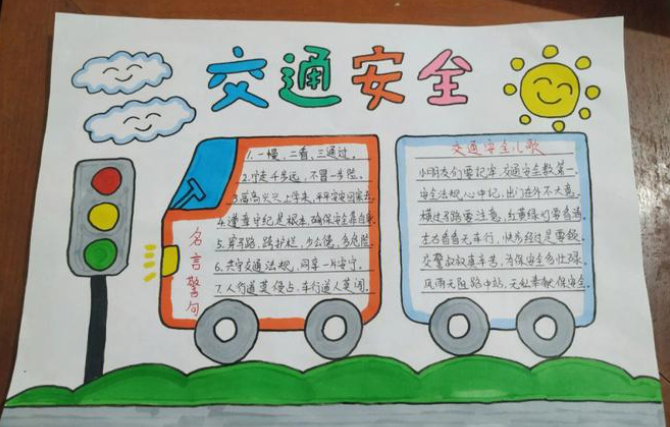 交通安全
名言警句
1. 一慢、二看、三通过。
2. 宁走千步远，不冒一步险。
3. 高高兴兴上学来，平平安安回家去。
4. 遵章守纪是根本，确保安全靠自身。
5. 穿马路，跨护栏，少公德，多危险。
6. 共守交通法规，同享一片安宁。
7. 人行道莫侵占，车行道人莫闯。
交通安全儿歌
小朋友们要记牢，交通安全数第一。
安全法规心中记，出门在外不大意。
横过马路要注意，红黄绿灯要看清。
左右看看无车行，快步经过是要领。
交警叔叔真辛苦，为保安全多忙碌。
风雨无阻路中站，无私奉献保安全。